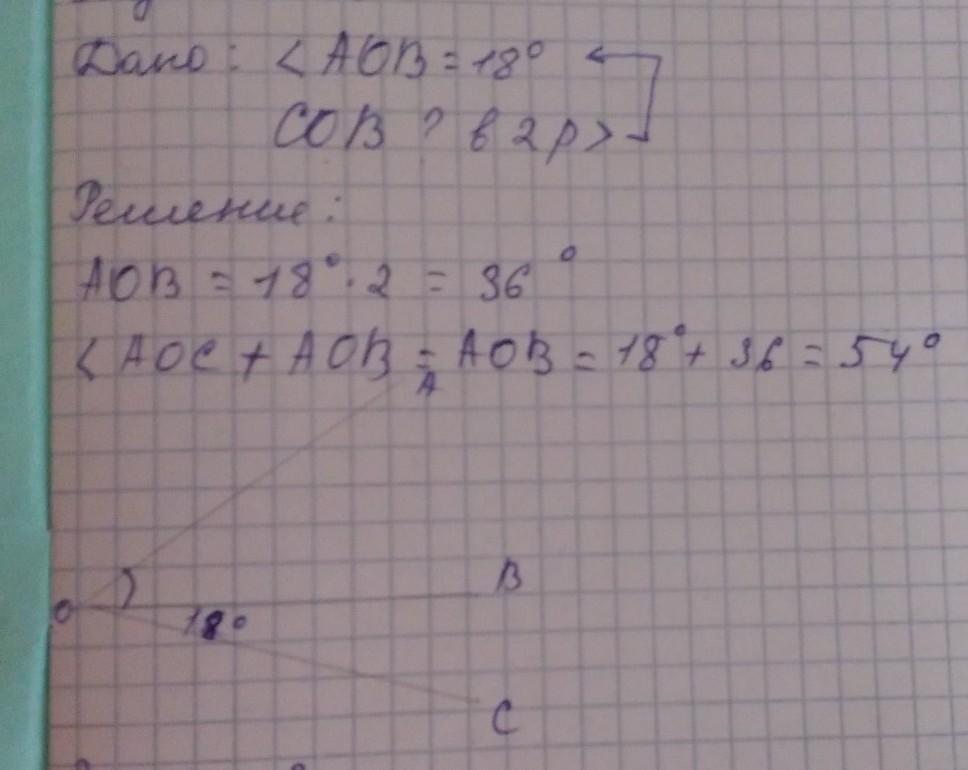 Дано: < AOB = 18°
COB ? в 2 р >
Решение:
AOB = 18° · 2 = 36°
< AOC + AOB = AOB = 18° + 36 = 54°
A
B
O
18°
C